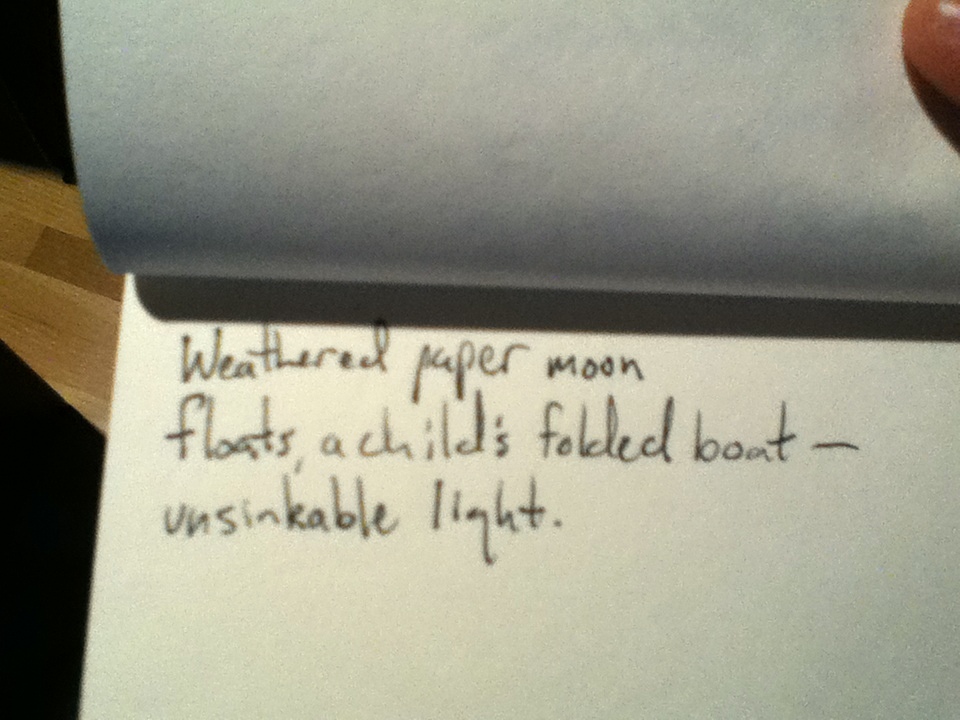 Weathered paper moon
floats, a child's folded boat —
unsinkable light.